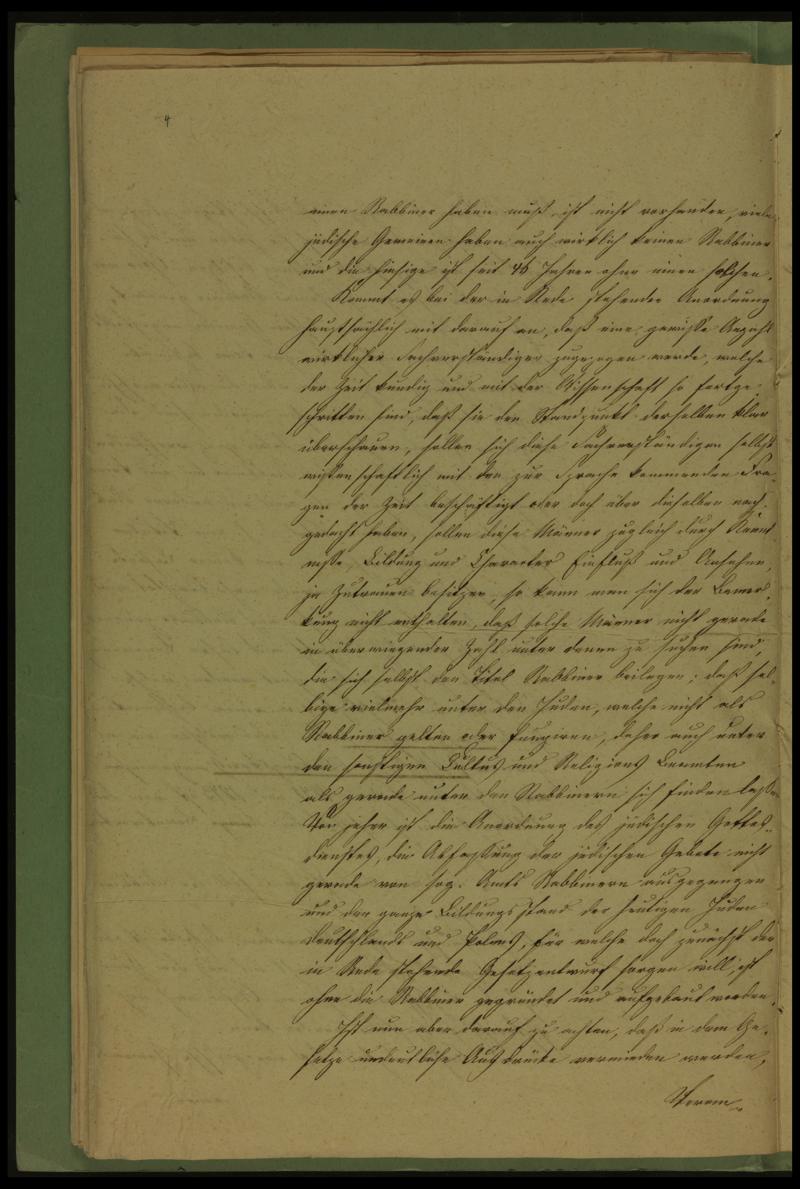 4
einen Rabbiner haben muß, ist nicht vorhanden, viele
jüdische Gemeinen haben auch wirklich keinen Rabbiner
und die hiesige ist seit 46 Jahren ohne einen solchen.
Kommt es bei der in Rede stehenden Anordnung
hauptsächlich mit darauf an, daß eine gewisse Anzahl
wirklicher Sachverständiger zugezogen werde, welche
der Zeit kundig und mit der Wissenschaft so fortge-
schritten sind, daß sie den Standpunkt derselben klar
überschauen, sollen sich diese Sachverständigen selbst
wissenschaftlich mit den zur Sprache kommenden Fra-
gen der Zeit beschäftigt oder doch über dieselben nach-
gedacht haben, sollen diese Männer zugleich durch Kennt-
nisse, Bildung und Character Einfluß und Ansehen,
ja Zutrauen besitzen, so kann man sich der Bemer-
kung nicht enthalten, daß solche Männer nicht gerade
in überwiegender Zahl unter denen zu suchen sind,
die sich selbst den Titel Rabbiner beilegen; daß sel-
bige vielmehr unter den Juden, welche nicht als
Rabbiner gelten oder fungiren, daher auch unter
den sonstigen Cultus und Religions Beamten
als gerade unter den Rabbinern sich finden lassen.
Von jeher ist die Anordnung des jüdischen Gottes-
dienstes, die Abfassung der jüdischen Gebete nicht
gerade von sog. Amts Rabbinern ausgegangen
und der ganze Bildungsstand der heutigen Juden
Deutschlands und Polens, für welche doch zunächst der
in Rede stehende Gesetzentwurf sorgen will, ist
ohne die Rabbiner gegründet und aufgebaut worden.
Ist nun aber darauf zu achten, daß in dem Ge-
setze undeutliche Ausdrücke vermieden werden,